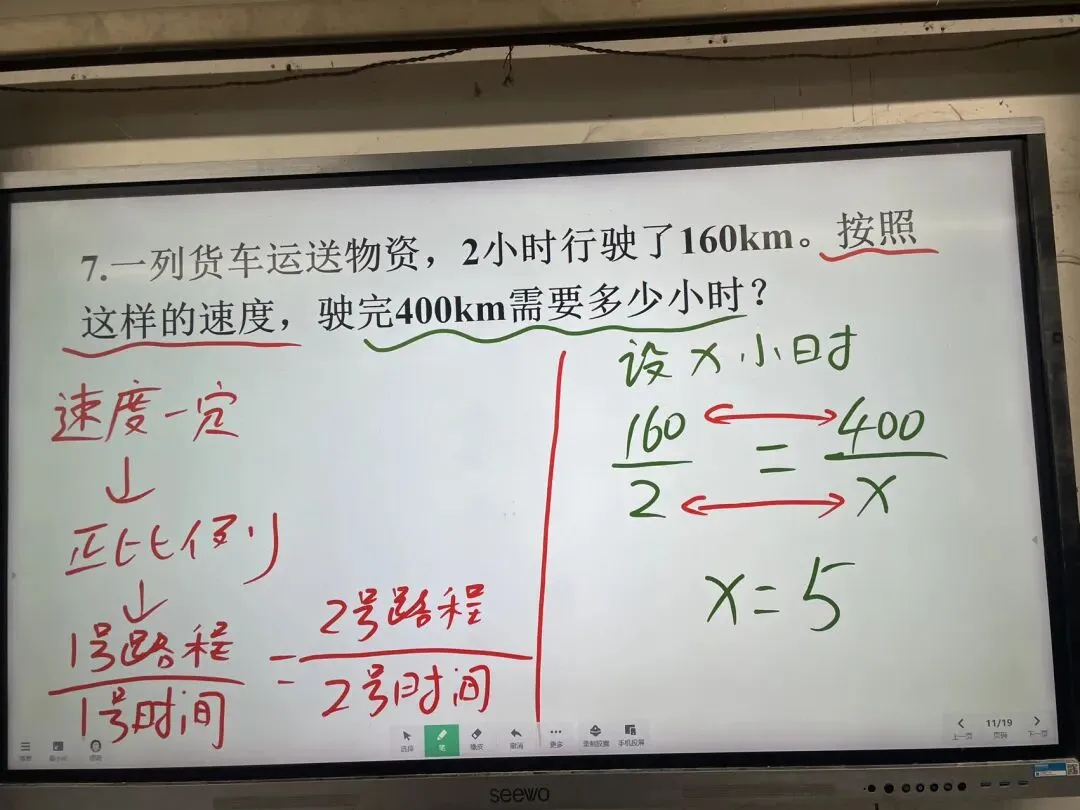 7.一列货车运送物资，2小时行驶了160km。按照
这样的速度，驶完400km需要多少小时？
速度一定
↓
正比例
↓
1号路程/1号时间 = 2号路程/2号时间
设 x 小时
160/2 = 400/x
x = 5
选择
笔
橡皮
撤消
更多
录制胶囊
手机投屏
上一页
11/19
页码
下一页
seewo